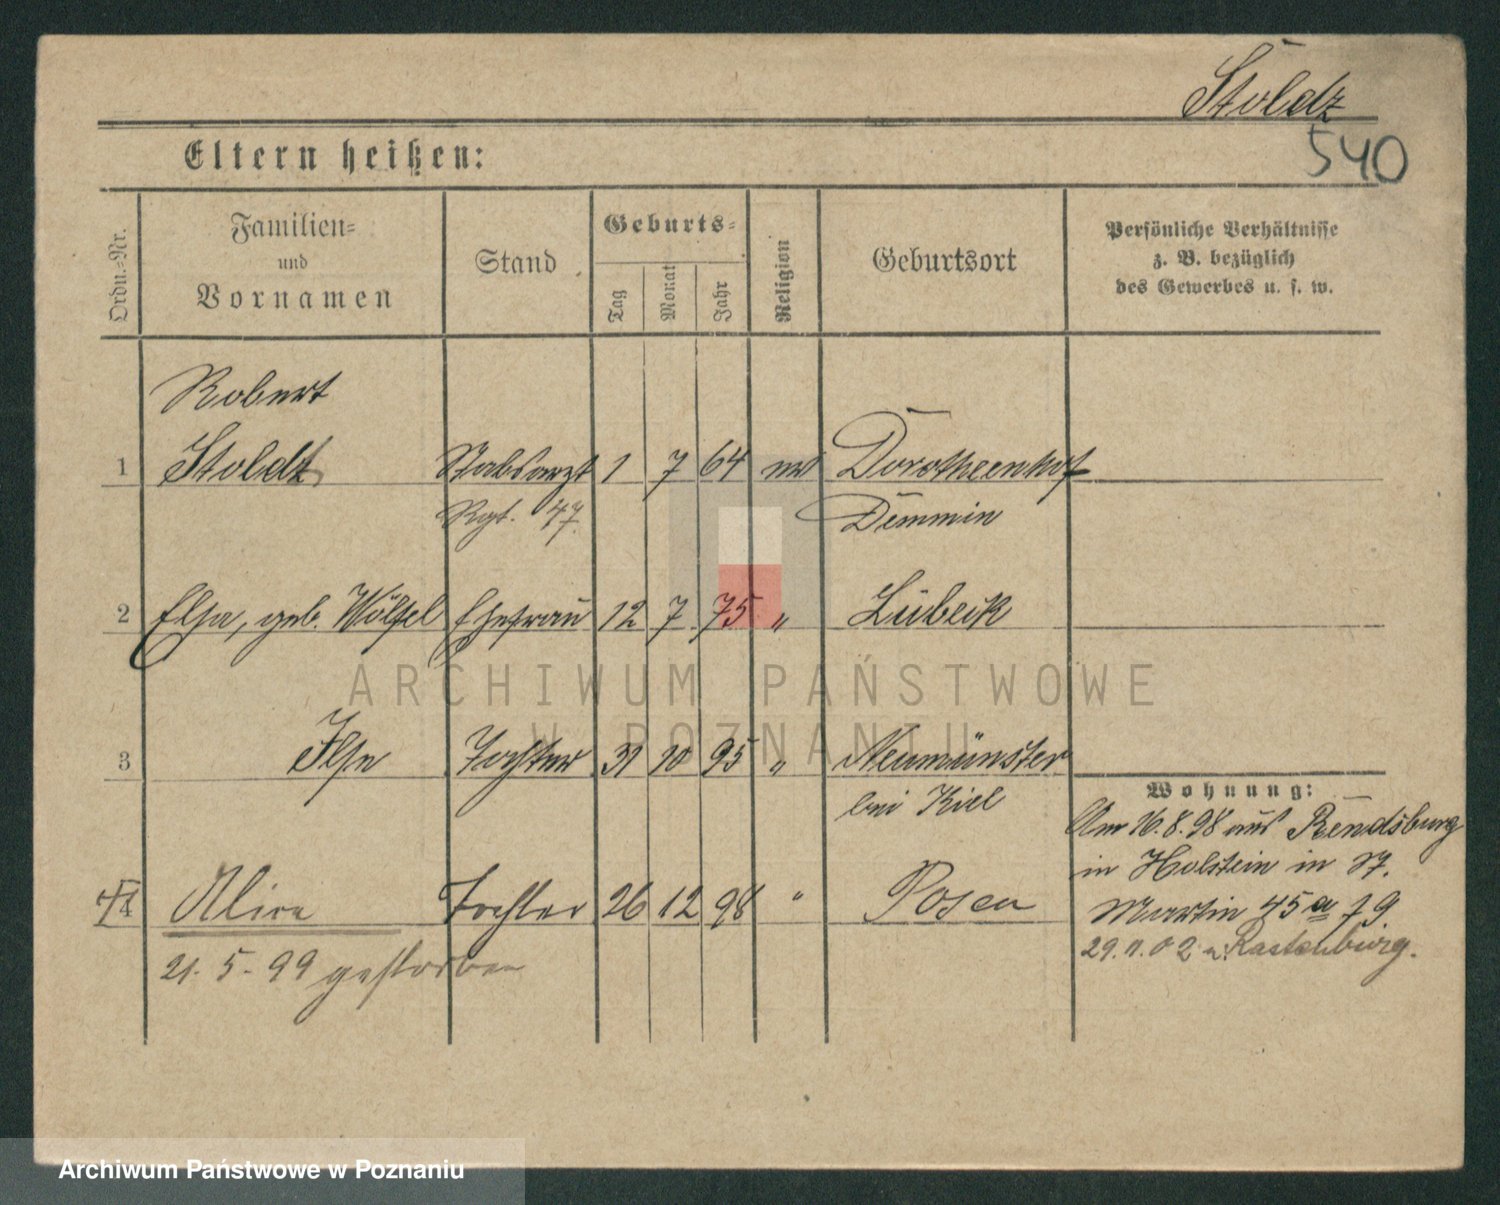 Stoldz
540
Eltern heißen:
Ordn.-Nr. Familien- und Vornamen Stand Geburts- Tag Monat Jahr Religion Geburtsort Persönliche Verhältnisse z. B. bezüglich des Gewerbes u. s. w.
Robert
1 Stoldt Stabsarzt 1 7 64 Dorotheenhof
Rgt. 47 Demmin
2 Elsa, geb. Wölfel Ehefrau 12 7 75 " Lübeck
3 Ilse Tochter 31 10 95 " Neumünster
bei Kiel
Wohnung:
Am 16.8.98 aus Rendsburg
in Holstein in
4 Alice Tochter 26 12 98 " Posen
Martin 45a
21.5.99 gestorben
29.11.02 n. Rastenburg.
ARCHIWUM PAŃSTWOWE
W POZNANIU
Archiwum Państwowe w Poznaniu